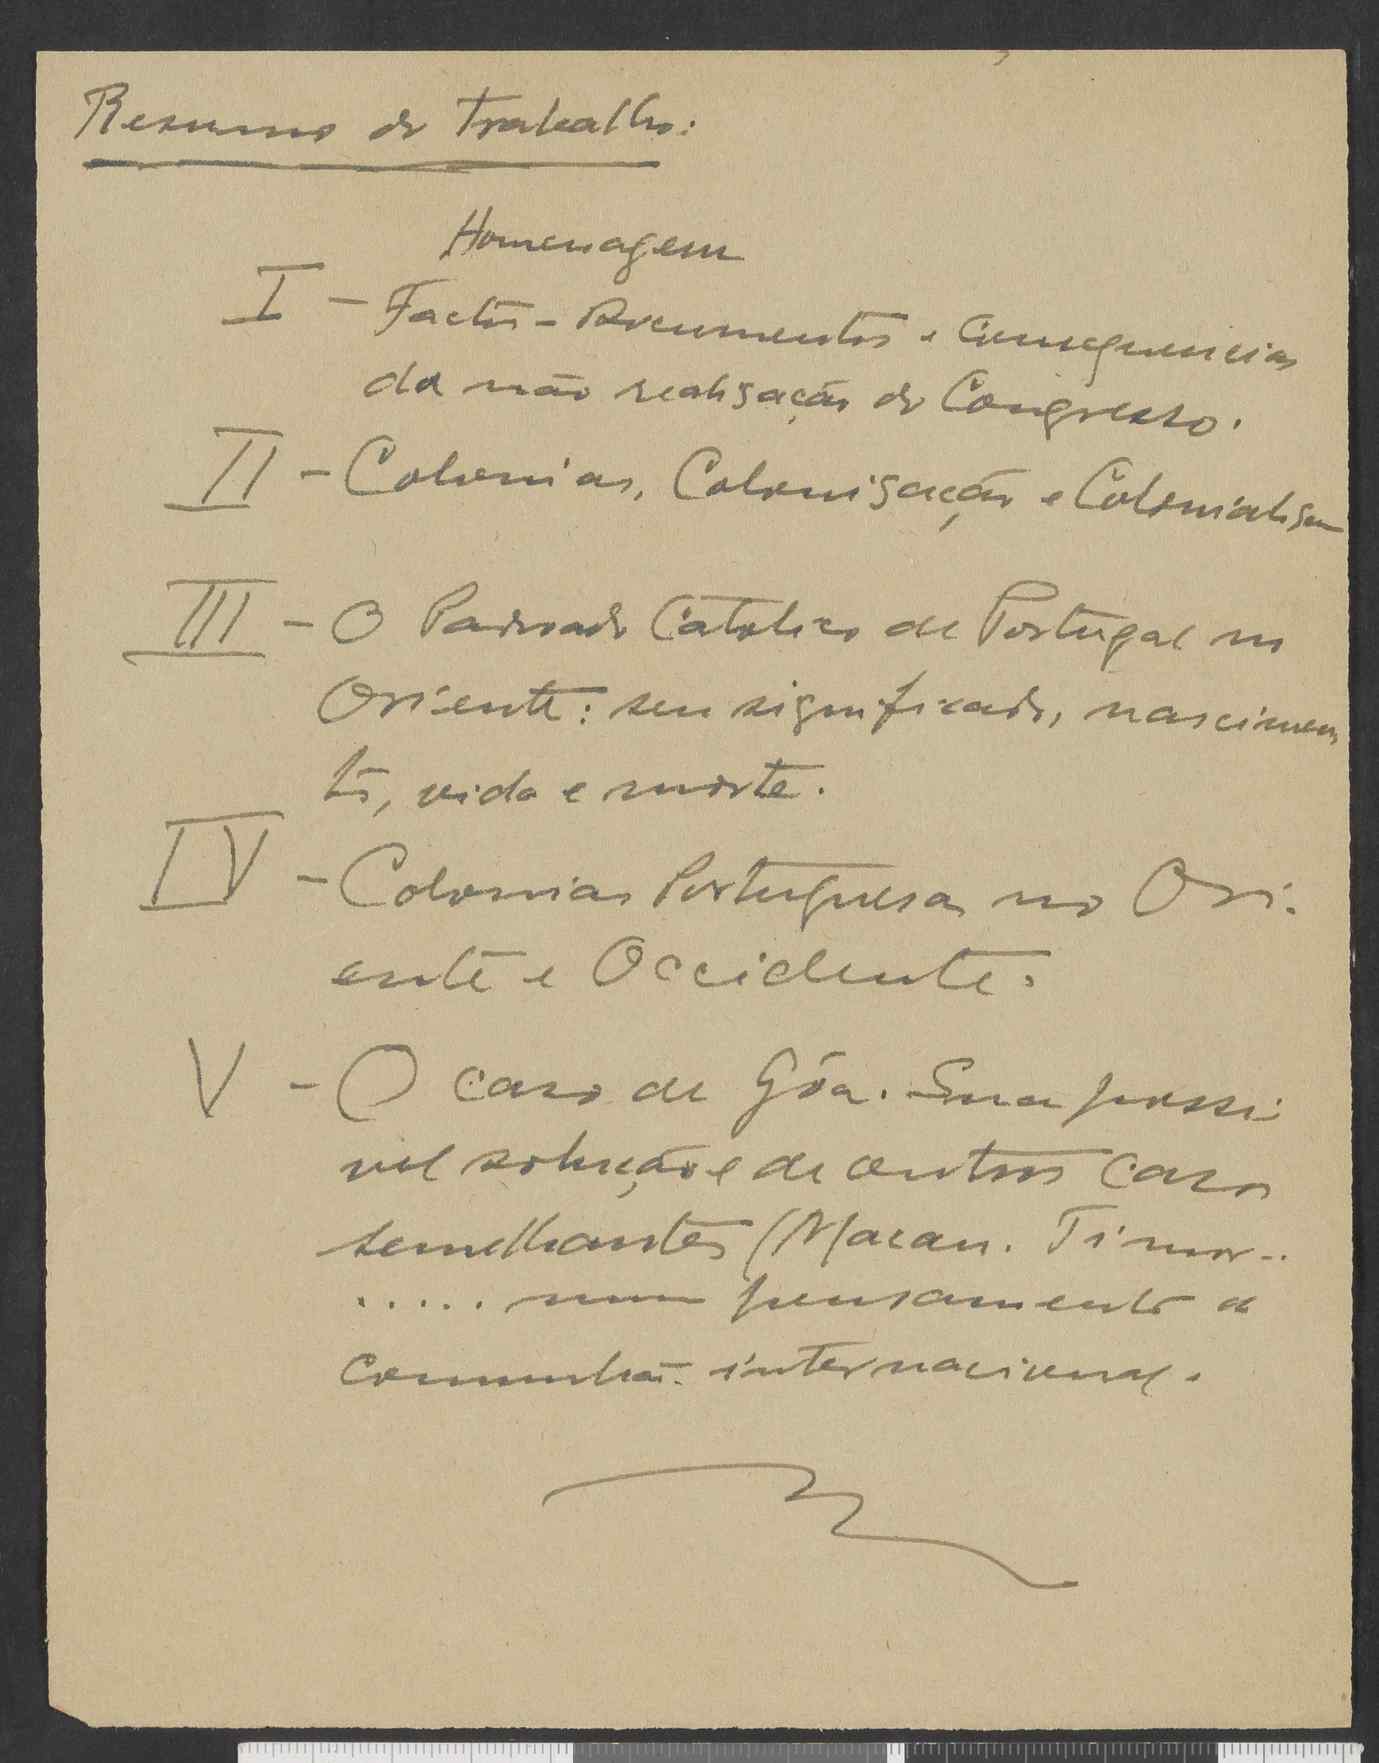 Resumo do Trabalho:
Homenagem
I - Factos - Documentos e Consequencias
da não realisação do Congresso.
II - Colonias, Colonisação e Colonialism
III - O Padroado Catolico de Portugal no
Oriente: seu significado, nascimen
to, vida e morte.
IV - Colonias Portuguesas no Ori-
ente e Occidente.
V - O caso de Gôa. Sua possi
vel solução e de outros casos
semelhantes (Macau. Timor..
..... num pensamento de
comunhão internacional.